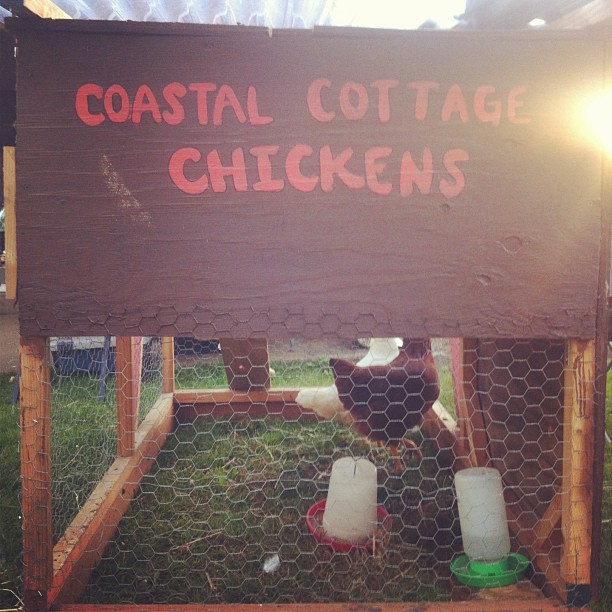 COASTAL COTTAGE
CHICKENS